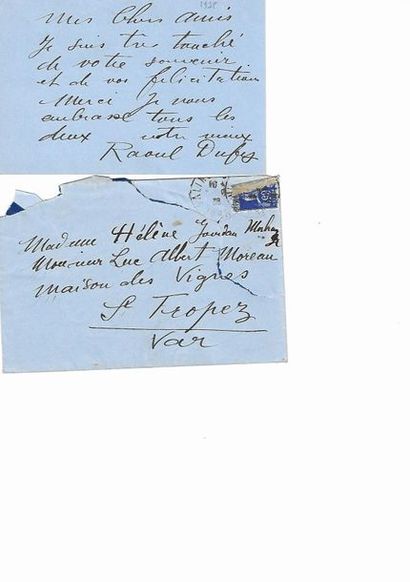 1938
Mes Chers Amis
Je suis très touché
de votre souvenir
et de vos félicitations
Merci Je vous
embrasse tous les
deux votre vieux
Raoul Dufy
Madame Hélène Jourdan Morhange
Monsieur Luc Albert Moreau
Maison des Vignes
St Tropez
Var